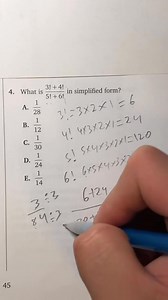 4. What is 3! + 4! / 5! + 6! in simplified form?
A. 1/28
B. 1/12
C. 1/30
D. 1/24
E. 1/14
3! = 3 × 2 × 1 = 6
4! 4×3×2×1 = 24
5! 5×4×3×2×1 = 120
6! 6×5×4×3×
3 ÷3
84 ÷3
6+24
45